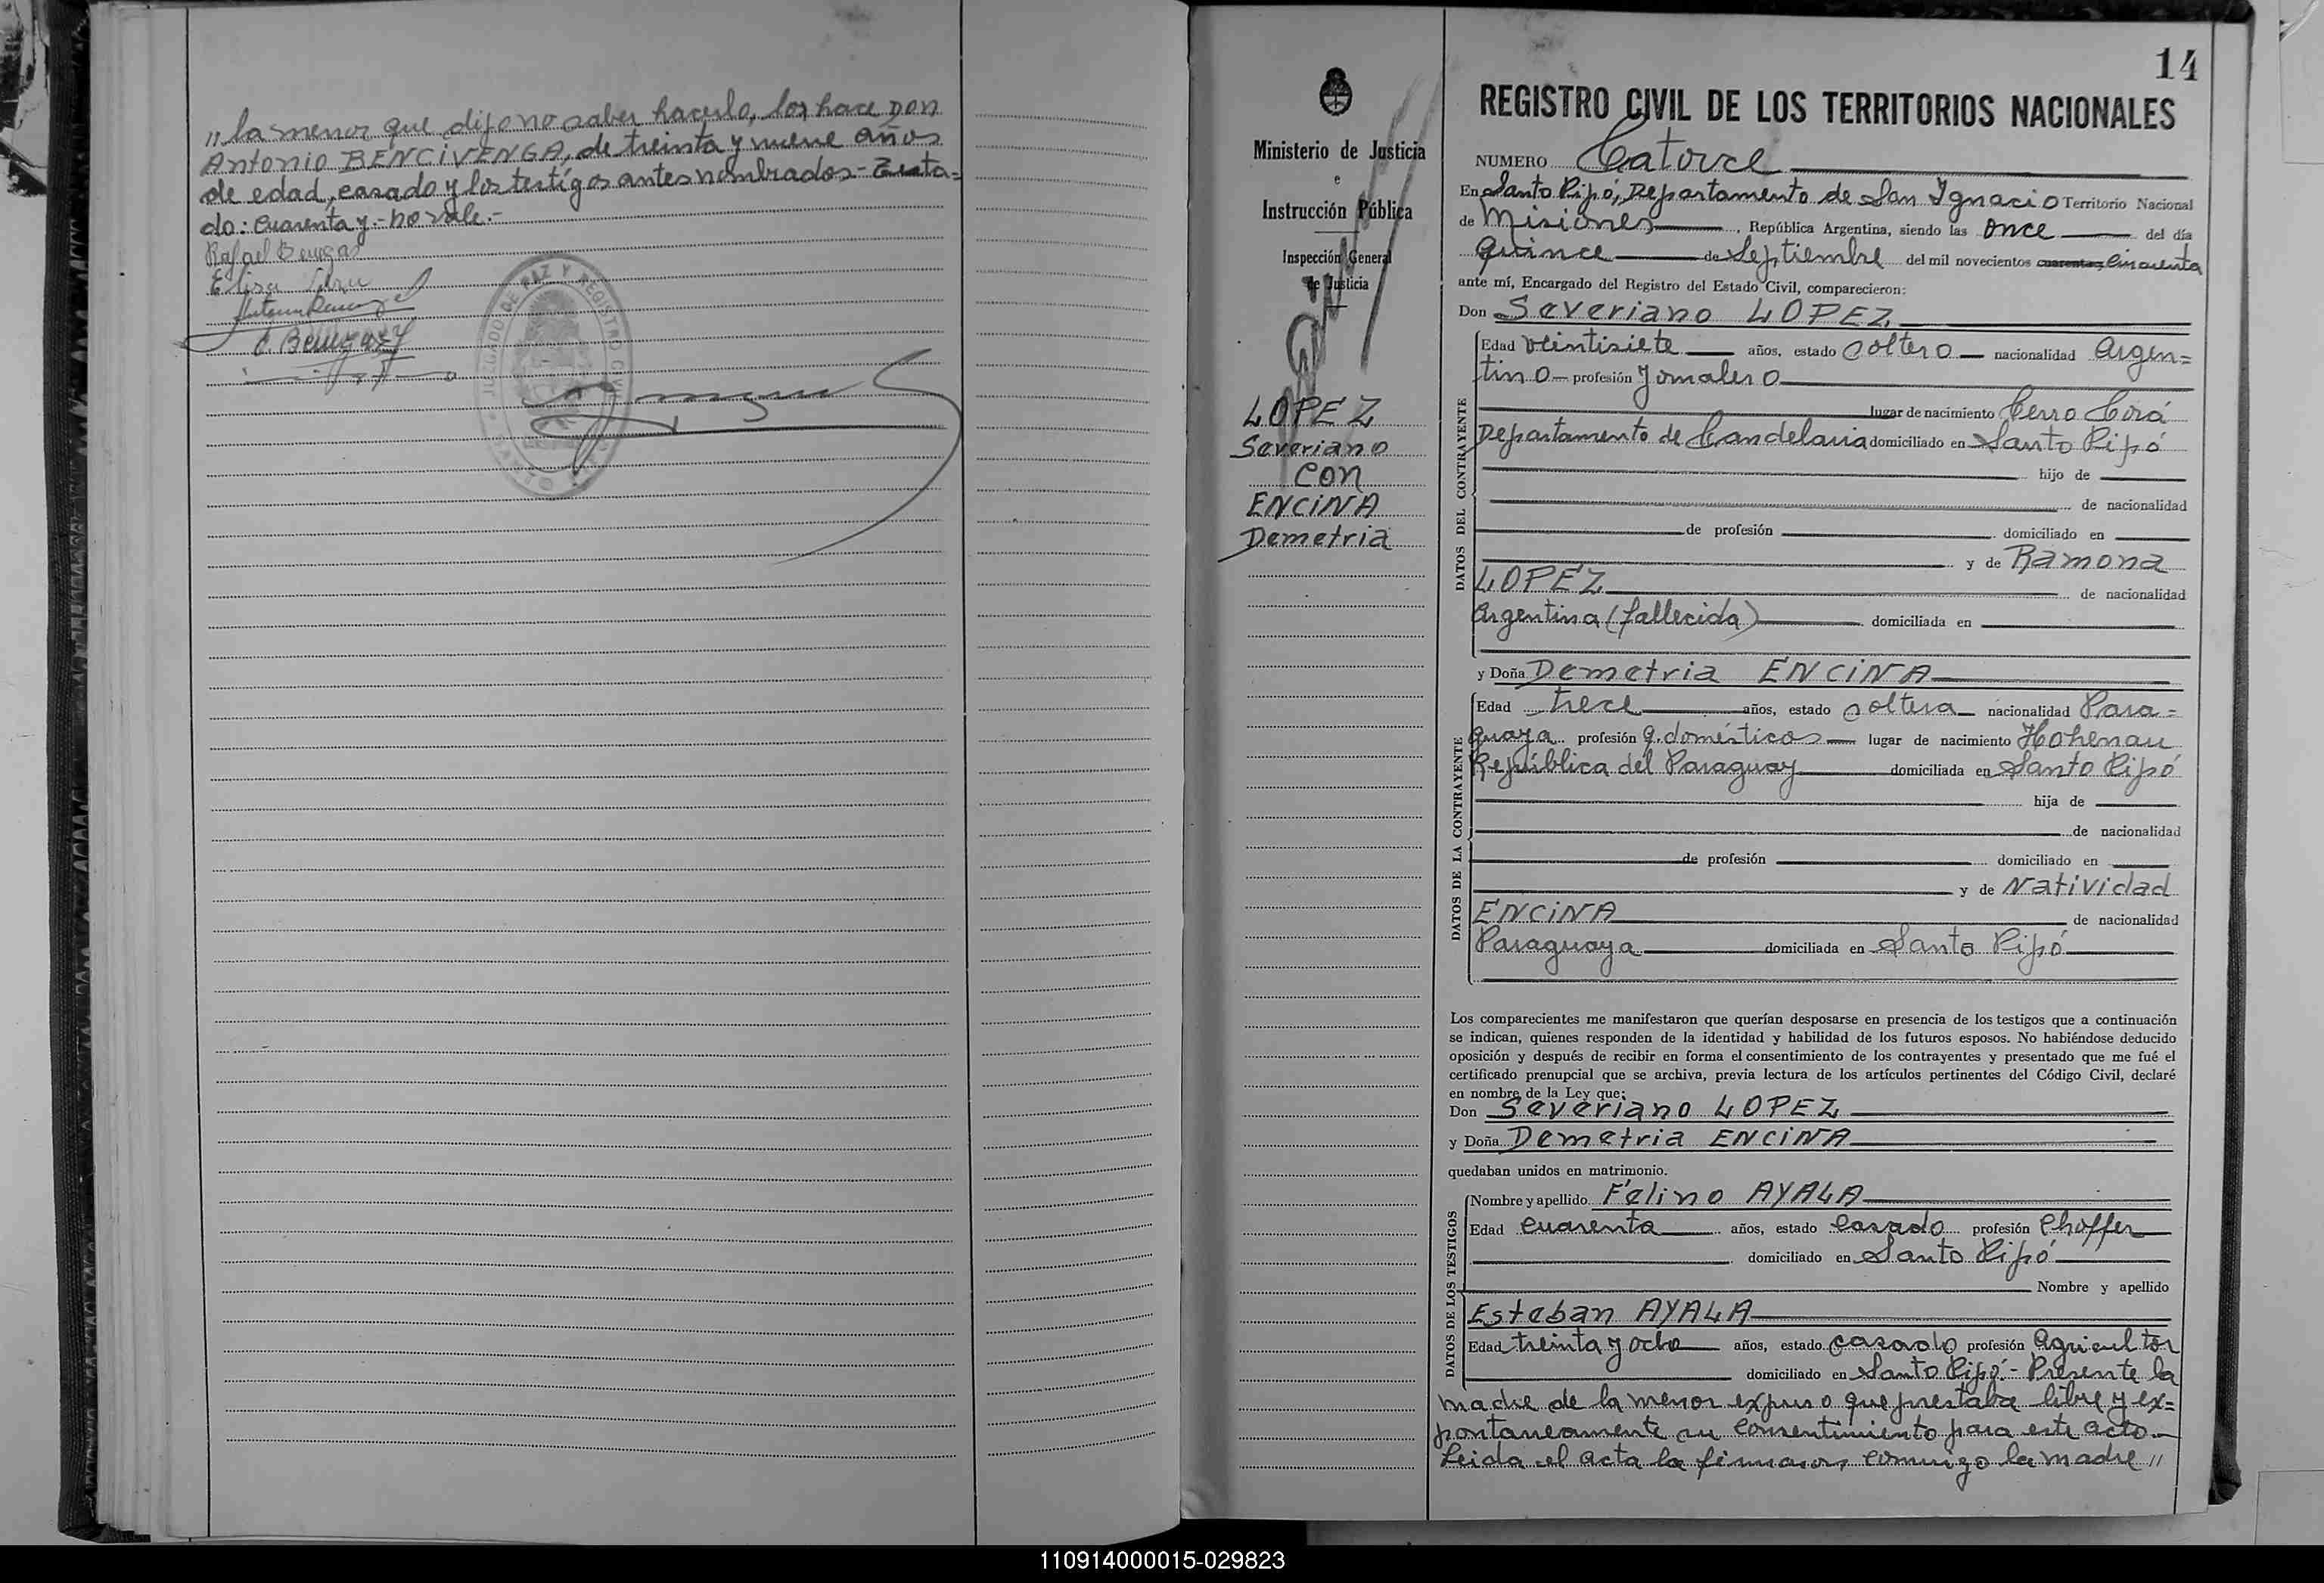 〃 la menor que dijo no saber hacerlo, los hace Don
Antonio BENCIVENGA, de treinta y nueve años
de edad, casado y los testigos antes nombrados - Testa=
do: cuarenta y - no vale.-
Rafael Benegas
Elisa
C. Benegas
JUZGADO DE PAZ Y REGISTRO CIVIL
14
Ministerio de Justicia
e
Instrucción Pública
Inspección General
de Justicia
LOPEZ
Severiano
con
ENCINA
Demetria
REGISTRO CIVIL DE LOS TERRITORIOS NACIONALES
NUMERO Catorce
En Santo Pipó, Departamento de San Ignacio Territorio Nacional
de Misiones, República Argentina, siendo las once del día
quince de Septiembre del mil novecientos cuarenta y cincuenta
ante mí, Encargado del Registro del Estado Civil, comparecieron:
Don Severiano LOPEZ
DATOS DEL CONTRAYENTE
Edad veintisiete años, estado soltero nacionalidad Argen=
tino profesión Jornalero
lugar de nacimiento Cerro Corá
Departamento de Candelaria domiciliado en Santo Pipó
hijo de
de nacionalidad
de profesión domiciliado en
y de Ramona
LOPEZ de nacionalidad
Argentina (fallecida) domiciliada en
y Doña Demetria ENCINA
DATOS DE LA CONTRAYENTE
Edad trece años, estado soltera nacionalidad Para=
guaya profesión q. domésticos lugar de nacimiento Hohenau
República del Paraguay domiciliada en Santo Pipó
hija de
de nacionalidad
de profesión domiciliado en
y de Natividad
ENCINA de nacionalidad
Paraguaya domiciliada en Santo Pipó
Los comparecientes me manifestaron que querían desposarse en presencia de los testigos que a continuación
se indican, quienes responden de la identidad y habilidad de los futuros esposos. No habiéndose deducido
oposición y después de recibir en forma el consentimiento de los contrayentes y presentado que me fué el
certificado prenupcial que se archiva, previa lectura de los artículos pertinentes del Código Civil, declaré
en nombre de la Ley que:
Don Severiano LOPEZ
y Doña Demetria ENCINA
quedaban unidos en matrimonio.
DATOS DE LOS TESTIGOS
Nombre y apellido Felino AYALA
Edad cuarenta años, estado casado profesión Choffer
domiciliado en Santo Pipó
Nombre y apellido
Esteban AYALA
Edad treinta y ocho años, estado casado profesión Agricultor
domiciliado en Santo Pipó.- Presente la
madre de la menor expuso que prestaba libre y ex=
pontaneamente su consentimiento para este acto.-
Leida el acta la firmaron conmigo la madre 〃
110914000015-029823